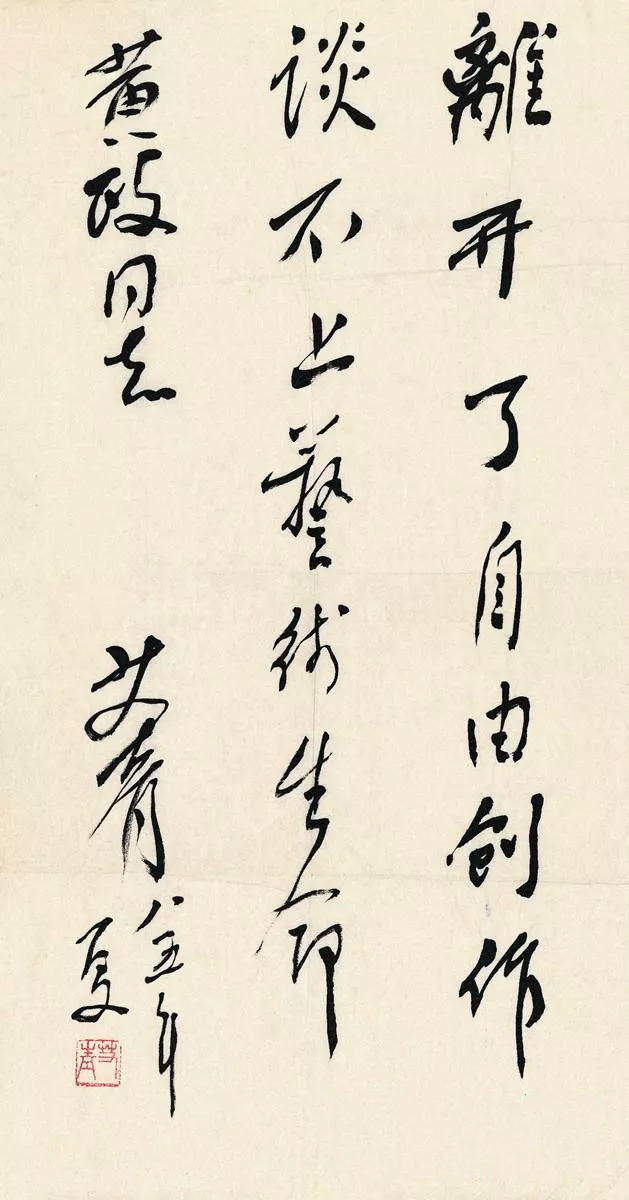 離開了自由創作
談不上藝術生命
黄政同志
艾青 八五年
夏
艾青